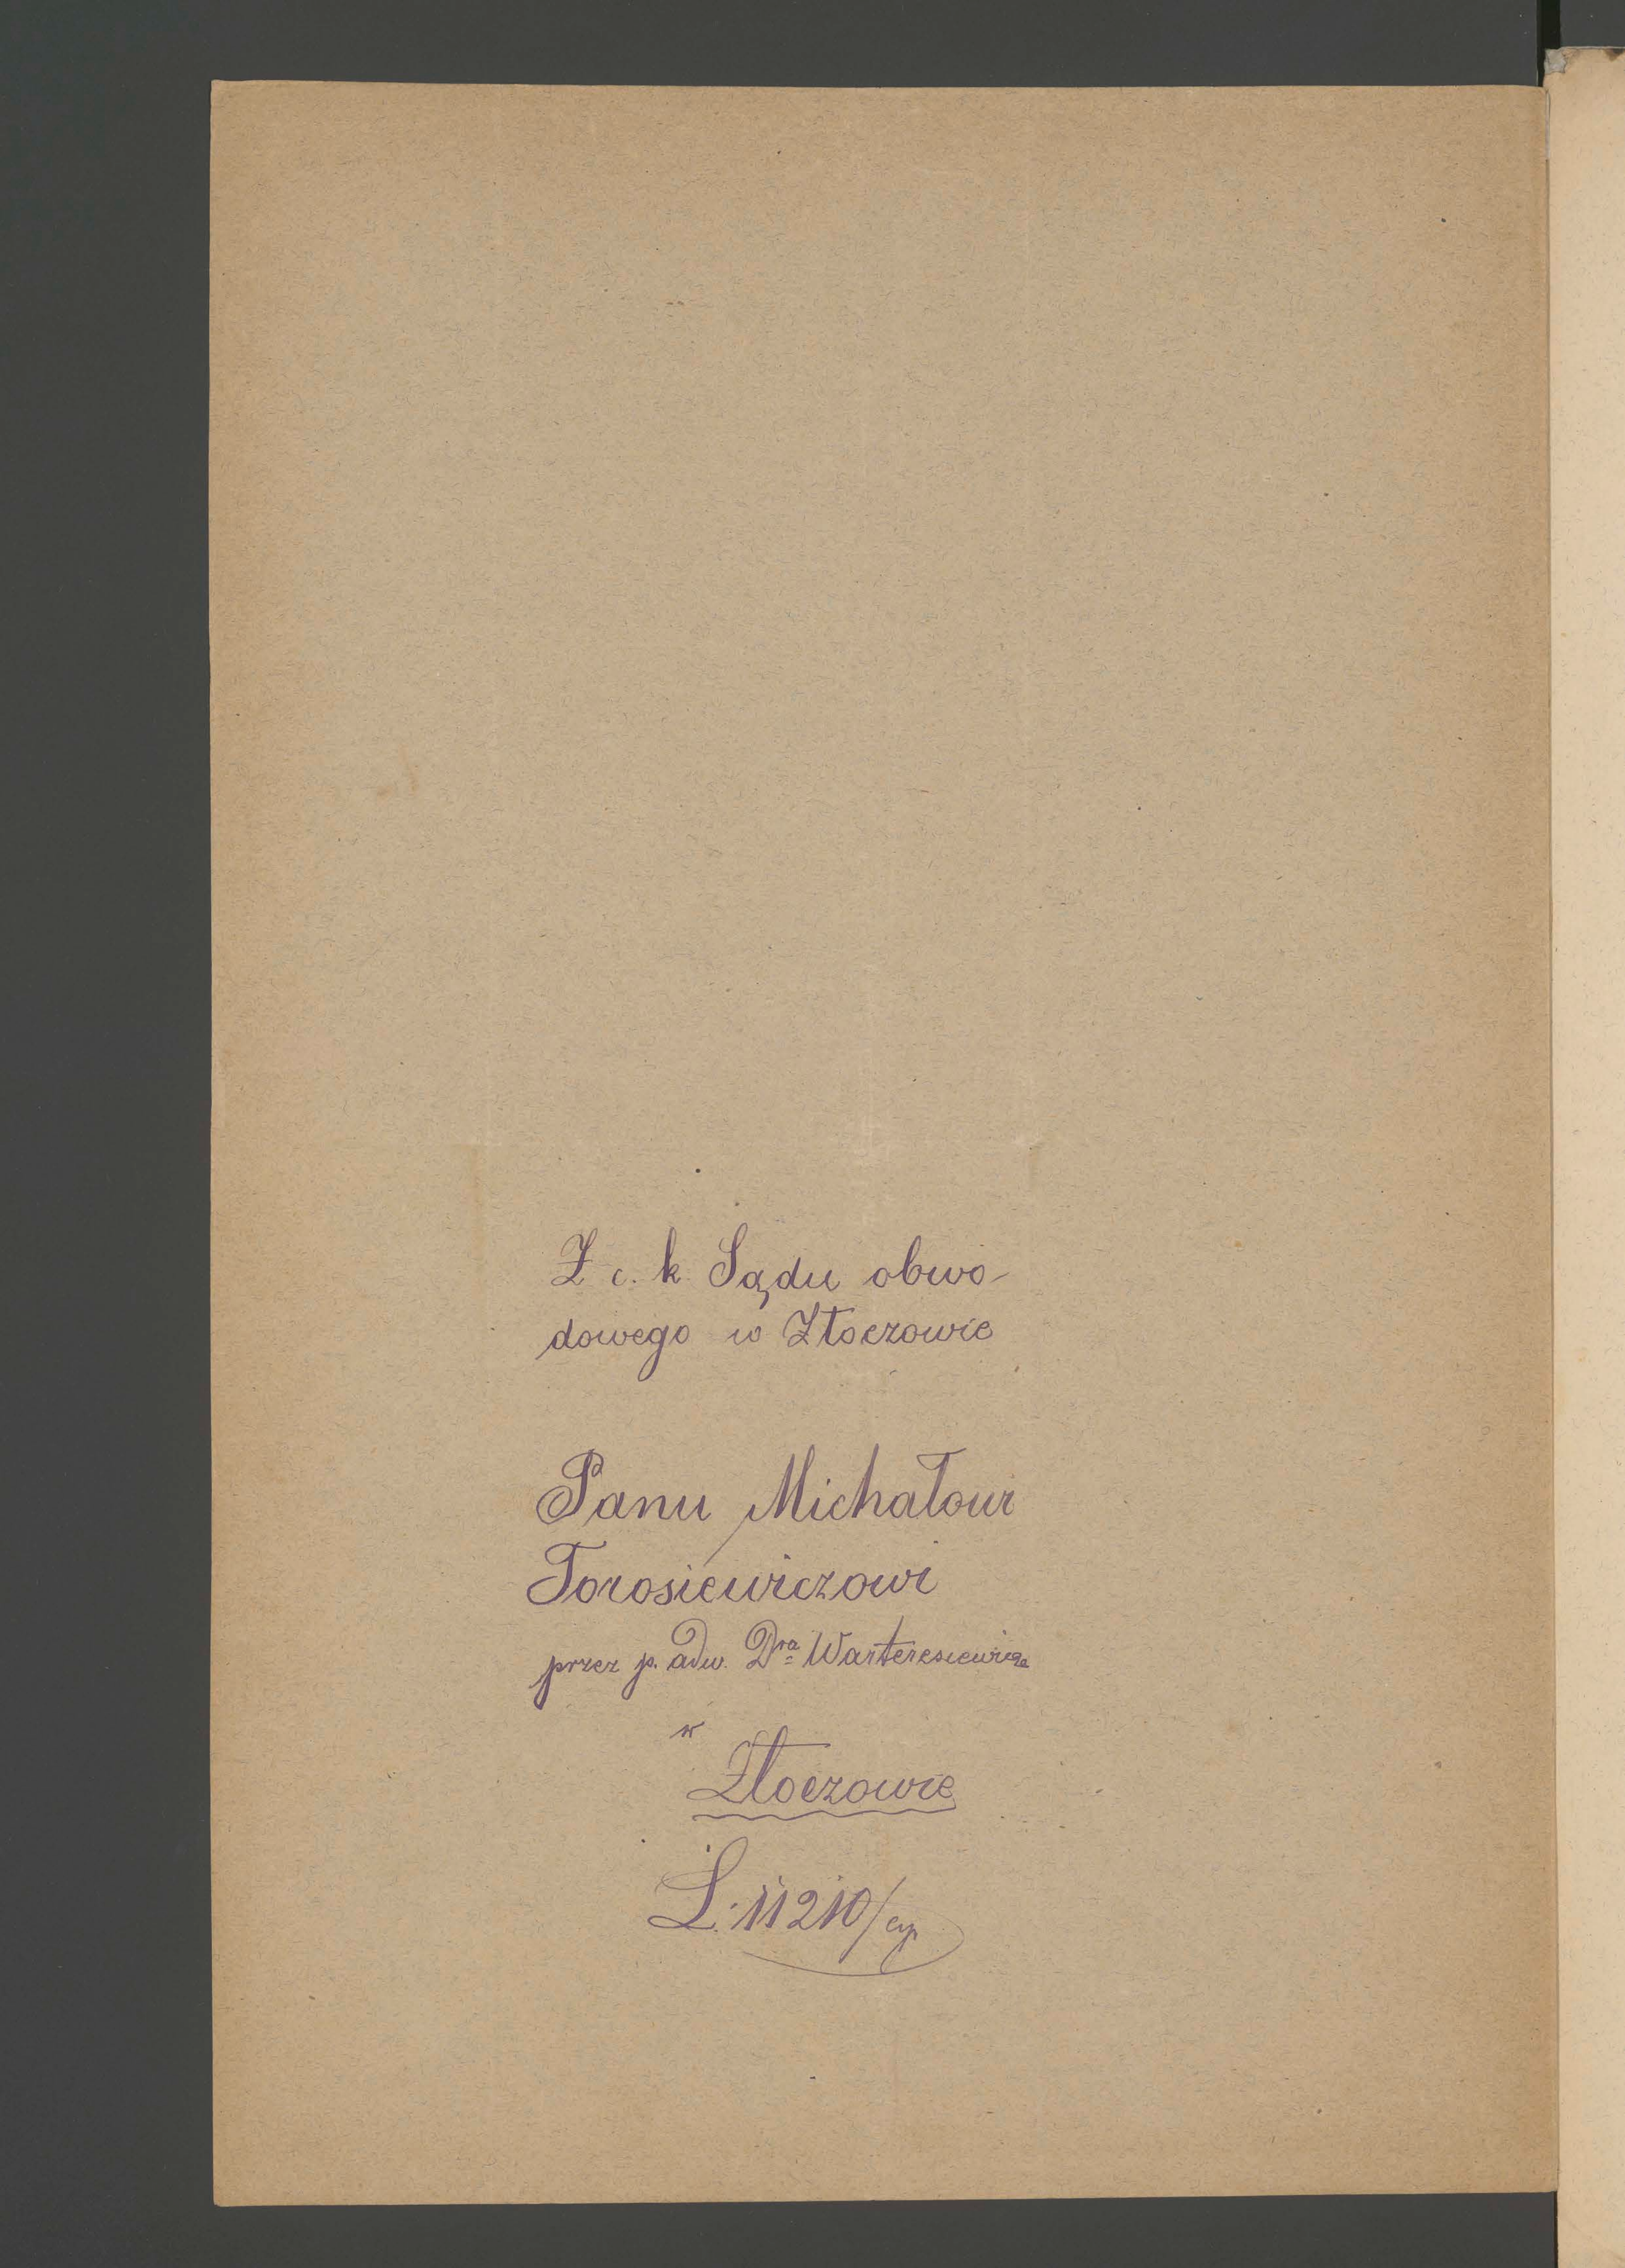 Z c. k. Sądu obwo-
dowego w Złoczowie
Panu Michałowi
Torosiewiczowi
przez p. adw. Dra Warteresiewicza
w
Złoczowie
L: 11210/cyw